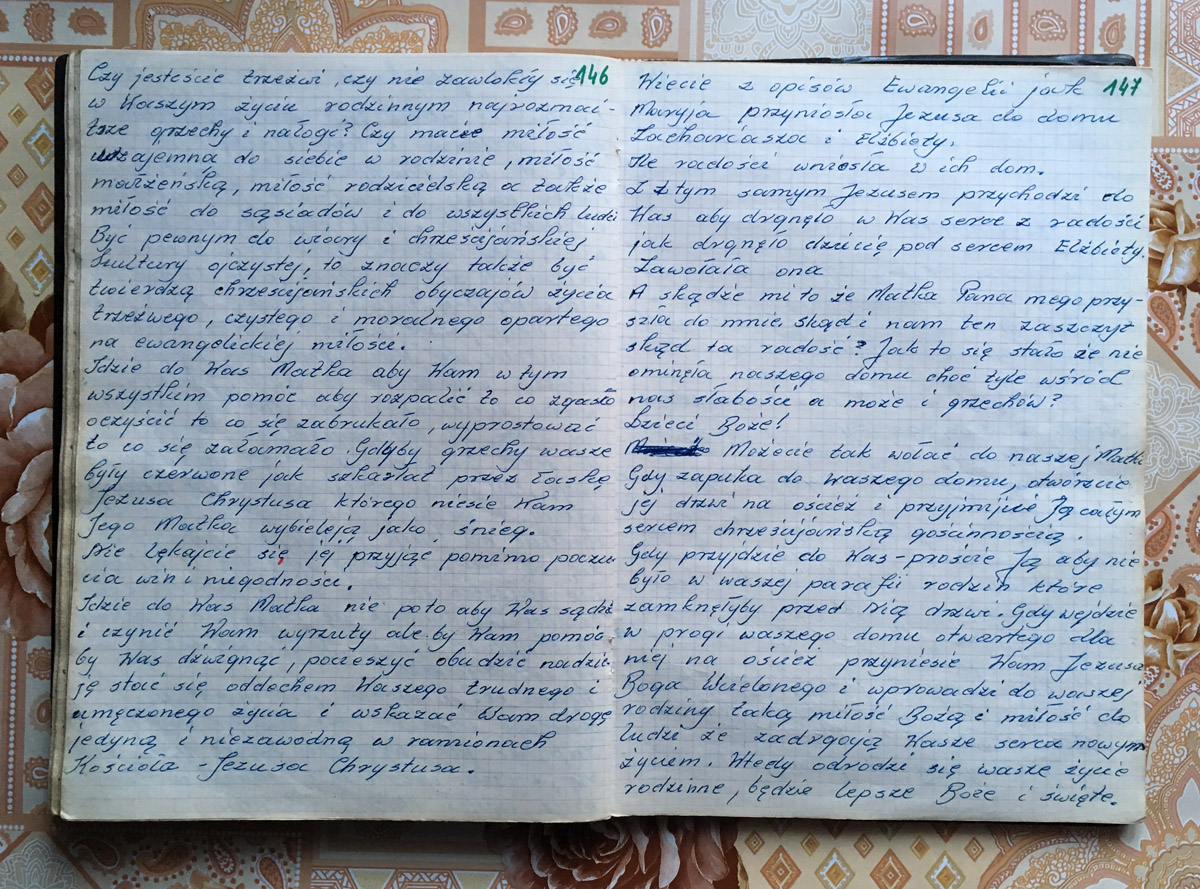 Czy jesteście trzeźwi, czy nie zawlokły się 146
w Waszym życiu rodzinnym najrozmai-
tsze grzechy i nałogi? Czy macie miłość
wzajemną do siebie w rodzinie, miłość
małżeńską, miłość rodzicielską a także
miłość do sąsiadów i do wszystkich ludzi
Być pewnym do wiary i chrześcijańskiej
kultury ojczystej, to znaczy także być
twierdzą chrześcijańskich obyczajów życia
trzeźwego, czystego i moralnego opartego
na ewangelickiej miłości.
Idzie do Was Matka aby Wam w tym
wszystkim pomóc aby rozpalić to co zgasło
oczyścić to co się zabrukało, wyprostować
to co się załamało. Gdyby grzechy wasze
były czerwone jak szkarłat przez łaskę
Jezusa Chrystusa którego niesie Wam
Jego Matka wybieleją jako śnieg.
Nie lękajcie się jej przyjąć pomimo poczu-
cia win i niegodności.
Idzie do Was Matka nie poto aby Was sądzić
i czynić Wam wyrzuty ale by Wam pomóc
by Was dźwignąć, pocieszyć obudzić nadzie-
ję stać się oddechem Waszego trudnego i
umęczonego życia i wskazać Wam drogę
jedyną i niezawodną w ramionach
Kościoła - Jezusa Chrystusa.
Wiecie z opisów Ewangelii jak 147
Maryja przyniosła Jezusa do domu
Zachariasza i Elżbiety.
Ile radości wniosła w ich dom.
Z tym samym Jezusem przychodzi do
Was aby drgnęło w Was serce z radości
jak drgnęło dziecię pod sercem Elżbiety.
Zawołała ona
A skądże mi to że Matka Pana mego przy-
szła do mnie. Skąd i nam ten zaszczyt
skąd ta radość? Jak to się stało że nie
ominęła naszego domu choć tyle wśród
nas słabości a może i grzechów?
Dzieci Boże!
Możecie tak wołać do naszej Matki
Gdy zapuka do Waszego domu, otwórzcie
jej drzwi na oścież i przyjmijcie Ją całym
sercem chrześcijańską gościnnością.
Gdy przyjdzie do Was - proście Ją aby nie
było w waszej parafii rodzin które
zamknęłyby przed Nią drzwi. Gdy wejdzie
w progi waszego domu otwartego dla
niej na oścież przyniesie Wam Jezusa
Boga Wcielonego i wprowadzi do waszej
rodziny taką miłość Bożą i miłość do
ludzi że zadrgają Wasze serca nowym
życiem. Wtedy odrodzi się wasze życie
rodzinne, będzie lepsze Boże i święte.